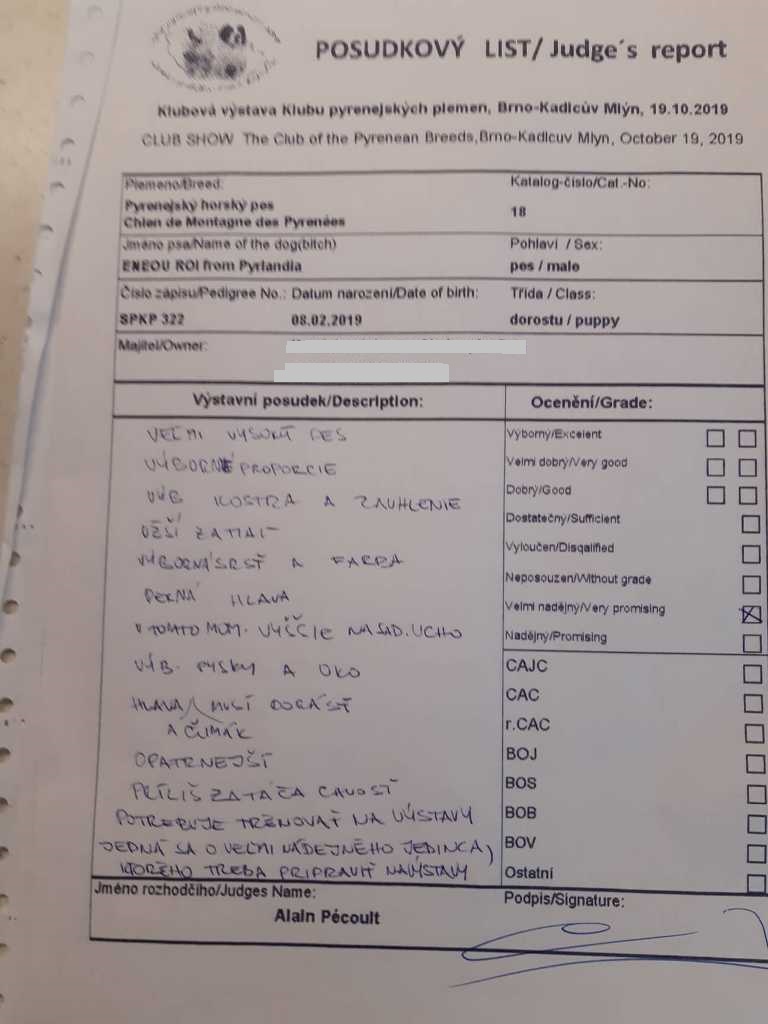 POSUDKOVÝ LIST/ Judge´s report
Klubová výstava Klubu pyrenejských plemen, Brno-Kadlcův Mlýn, 19.10.2019
CLUB SHOW The Club of the Pyrenean Breeds,Brno-Kadlcuv Mlyn, October 19, 2019
Plemeno/Breed:
Katalog-číslo/Cat.-No:
Pyrenejský horský pes
Chien de Montagne des Pyrenées
18
Jméno psa/Name of the dog(bitch)
Pohlaví / Sex:
ENEOU ROI from Pyrlandia
pes / male
Číslo zápisu/Pedigree No.: Datum narození/Date of birth:
Třída / Class:
SPKP 322
08.02.2019
dorostu / puppy
Majitel/Owner:
Výstavní posudek/Description:
Ocenění/Grade:
VEĽMI VYSOKÝ PES
VÝBORNÉ PROPORCIE
VÝB KOSTRA A ZAUHLENIE
UŽŠÍ ZATIAĽ
VÝBORNÁ SRSŤ A FARBA
PEKNÁ HLAVA
V TOMTO MOM. VYŠŠIE NASAD. UCHO
VÝB. PYSKY A OKO
HLAVA MUSÍ DORÁSŤ
A ČUMÁK
OPATRNEJŠÍ
PRÍLIŠ ZATÁČA CHVOSŤ
POTREBUJE TRÉNOVAŤ NA VÝSTAVY
JEDNÁ SA O VEĽMI NÁDEJNÉHO JEDINCA,
KTORÉHO TREBA PRIPRAVIŤ NA VÝSTAVY
Výborný/Excelent
Velmi dobrý/Very good
Dobrý/Good
Dostatečný/Sufficient
Vyloučen/Disqalified
Neposouzen/Without grade
Velmi nadějný/Very promising
Nadějný/Promising
CAJC
CAC
r.CAC
BOJ
BOS
BOB
BOV
Ostatní
Jméno rozhodčího/Judges Name:
Podpis/Signature:
Alain Pécoult